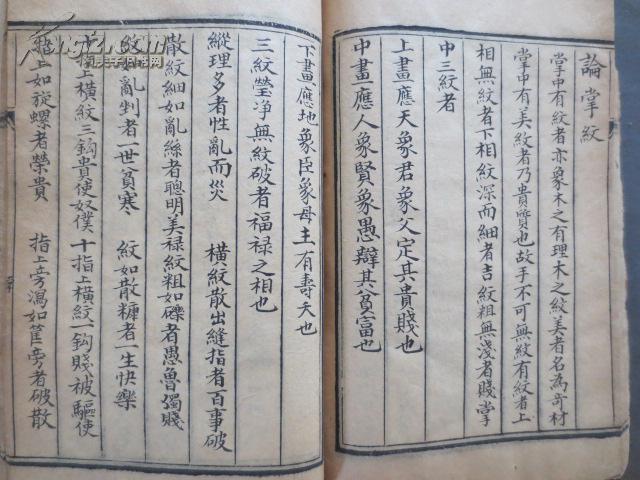 論掌紋
掌中有紋者亦象木之有理木之紋美者名為奇材
掌中有美紋者乃貴質也故手不可無紋有紋者上
相無紋者下相紋深而細者吉紋粗無淺者賤掌
中三紋者
上畫應天象君象父定其貴賤也
中畫應人象賢象愚辯其貧富也
下畫應地象臣象母主有壽夭也
三紋瑩净無紋破者福禄之相也
縱理多者性亂而災 橫紋散出縫指者百事破
散紋細如亂絲者聰明美禄紋粗如礫者愚魯濁賤
紋亂剉者一世貧寒 紋如散糠者一生快樂
指上橫紋三鈎貴使奴僕 十指上橫紋一鈎賤被驅使
指上如旋螺者榮貴 指上旁瀉如筐旁者破散